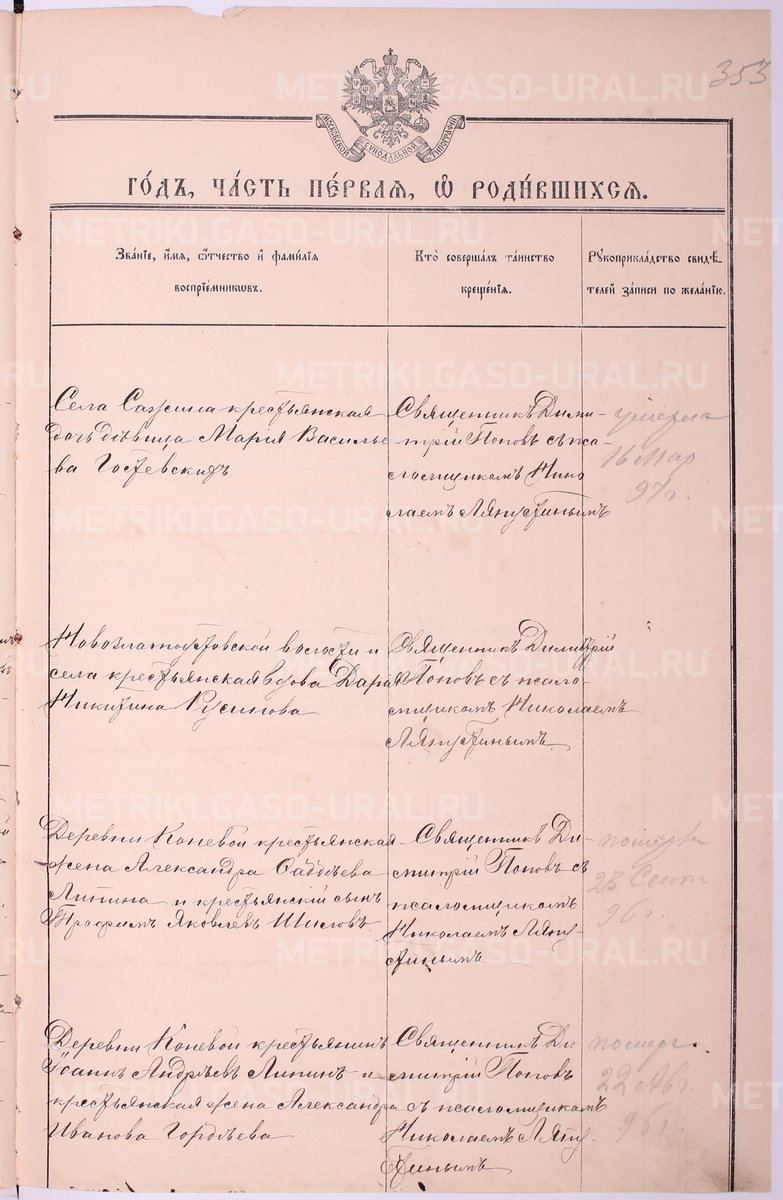 353
МОСКОВСКОЙ СУНОДАЛЬНОЙ ТИПОГРАФІИ
ГО́ДЪ, ЧА́СТЬ ПЕ́РВАЯ, Ѡ҆ РОДИ́ВШИХСЯ.
Зва́нїе, и҆́мѧ, ѻ҆́тчество и҆ фами́лїѧ
воспрїе́мникѡвъ.
Кто̀ соверша́лъ та́инство
креще́нїѧ.
Рꙋкоприкла́дство свидѣ́-
телей за́писи по жела́нїю.
Села Сажина крестьянская
дочь дѣвица Марія Василье
ва Гостевскихъ
Священникъ Дими-
трій Поповъ съ пса-
ломщикомъ Нико
лаемъ Ляпустинымъ
умерла
16 Мар
97 г.
Новозлатоустовской волости и
села крестьянская вдова Дарія
Никитина Русинова
Священникъ Димитрій
Поповъ съ псало-
мщикомъ Николаемъ
Ляпустинымъ.
Деревни Коневой крестьянская
жена Александра Фаддѣева
Липина и крестьянскій сынъ
Трофимъ Яковлевъ Шиловъ.
Священникъ Ди-
митрій Поповъ съ
псаломщикомъ
Николаемъ Ляпу-
стинымъ
23 Сент
96 г.
Деревни Коневой крестьянинъ
Іоаннъ Андрѣевъ Липинъ и
крестьянская жена Александра
Иванова Гордѣева
Священникъ Ди
митрій Поповъ
съ псаломщикомъ
Николаемъ Ляпу-
стинымъ
помер.
22 Авг.
96 г.
METRIKI.GASO-URAL.RU